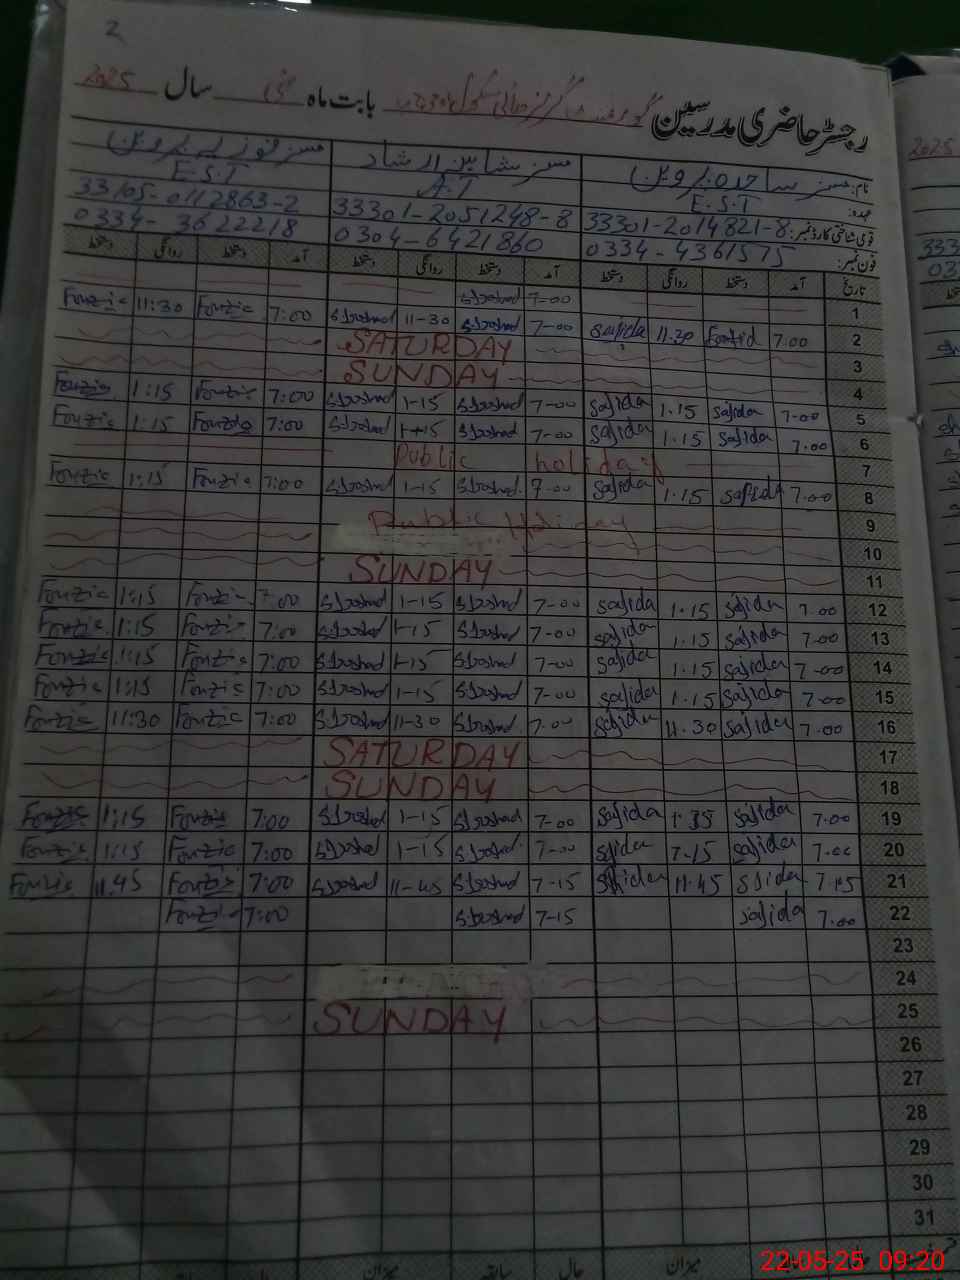 2
رجسٹر حاضری مدرسین بابت ماہ مئی سال 2025
نام: مسز ساجدہ پروین مسز شاہین ارشاد مسز فوزیہ پروین
عہدہ: E.S.T A.T E.S.T
قومی شناختی کارڈ نمبر: 33301-2014821-8 33301-2051248-8 33105-0112863-2
فون نمبر: 0334-4361575 0304-6421860 0334-3622218
تاریخ آمد دستخط روانگی دستخط آمد دستخط روانگی دستخط آمد دستخط روانگی دستخط
1 7-00 SIrshad
2 7.00 11.30 Sajida 7-00 SIrshad 11-30 SIrshad 7:00 Fouzia 11:30 Fouzia
3 SATURDAY
4 SUNDAY
5 7-00 Sajida 1.15 Sajida 7-00 SIrshad 1-15 SIrshad 7:00 Fouzia 1:15 Fouzia
6 7.00 Sajida 1.15 Sajida 7-00 SIrshad 1-15 SIrshad 7:00 Fouzia 1:15 Fouzia
7 Public holiday
8 7.00 Sajida 1.15 Sajida 7-00 SIrshad 1-15 SIrshad 7:00 Fouzia 1:15 Fouzia
9 Public Holiday
10
11 SUNDAY
12 7.00 Sajida 1.15 Sajida 7-00 SIrshad 1-15 SIrshad 7:00 Fouzia 1:15 Fouzia
13 7.00 Sajida 1.15 Sajida 7-00 SIrshad 1-15 SIrshad 7:00 Fouzia 1:15 Fouzia
14 7-00 Sajida 1.15 Sajida 7-00 SIrshad 1-15 SIrshad 7:00 Fouzia 1:15 Fouzia
15 7-00 Sajida 1.15 Sajida 7-00 SIrshad 1-15 SIrshad 7:00 Fouzia 1:15 Fouzia
16 7-00 Sajida 11.30 Sajida 7-00 SIrshad 11-30 SIrshad 7:00 Fouzia 11:30 Fouzia
17 SATURDAY
18 SUNDAY
19 7.00 Sajida Sajida 7-00 SIrshad 1-15 SIrshad 7:00 Fouzia 1:15 Fouzia
20 7.00 Sajida Sajida 7-00 SIrshad 1-15 SIrshad 7:00 Fouzia 1:15 Fouzia
21 Sajida 11.45 Sajida 7-15 SIrshad 11-45 SIrshad 7:00 Fouzia 11.45 Fouzia
22 7.00 Sajida 7-15 SIrshad 7:00 Fouzia
23
24
25 SUNDAY
26
27
28
29
30
31
میزان حال سابقہ میزان
22-05-25 09:20